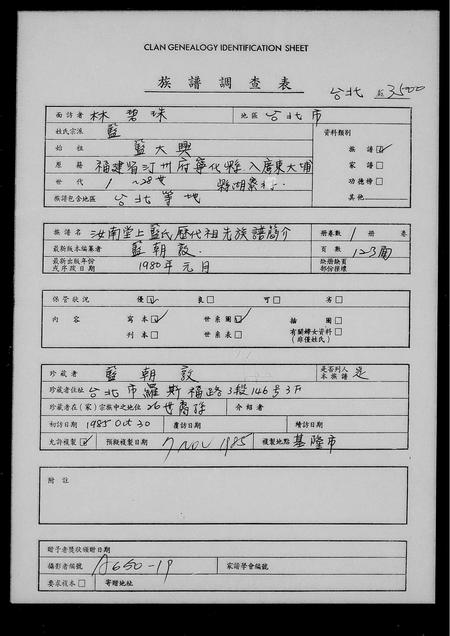 CLAN GENEALOGY IDENTIFICATION SHEET
族譜調查表
台北 3500
面訪者 林碧珠 地區 台北市
姓氏宗派 藍 資料類別
始祖 藍大興 族譜☑
原籍 福建省汀州府寧化縣入廣東大埔 家譜□
世代 1~28世 縣湖寮 功德榜□
族譜包含地區 台北等地 其他
族譜名 汝南堂上藍氏歷代祖先族譜簡介 冊卷數 1冊 卷
最新版本編纂者 藍朝敦 頁數 123面
最新出版年份或序政日期 1980年元月 缺冊缺頁部份推標
保管狀況 優☑ 良□ 可□ 劣□
內容 寫本☑ 世系圖☑ 插圖□
刊本□ 世系表□ 有關婦女資料(非僅姓氏)□
珍藏者 藍朝敦 是否列入本族譜 是
珍藏者住址 台北市羅斯福路3段146号3F
珍藏者在(家)宗族中之地位 26世裔孫 介紹者
初訪日期 1985 Oct 30 覆訪日期 續訪日期
允許複製☑ 預擬複製日期 7 NOV 1985 複製地點 基隆市
附註
贈予者獎狀頒贈日期
攝影者編號 A650-19 家譜學會編號
要求複本□ 寄贈地址